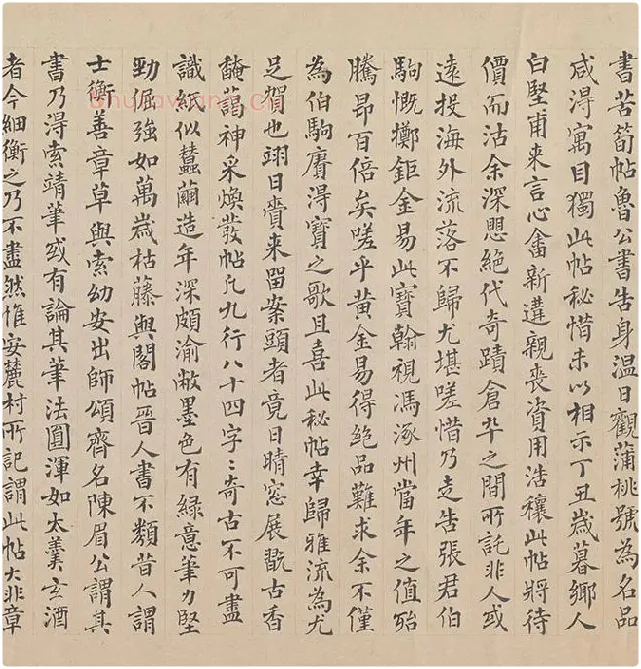 書苦筍帖魯公書告身温日觀蒲桃號為名品
咸得寓目獨此帖秘惜未以相示丁丑歲暮鄉人
白堅甫来言心畬新遘親喪資用浩穰此帖將待
價而沽余深愳絕代奇蹟倉卒之間所託非人或
遠投海外流落不歸尤堪嗟惜乃走告張君伯
駒慨擲鉅金易此寶翰視馮涿州當年之值殆
騰昂百倍矣嗟乎黄金易得絕品難求余不僅
為伯駒賡得寶之歌且喜此秘帖幸歸雅流為尤
足賀也翊日賫来留案頭者竟日晴窓展翫古香
馣藹神采煥發帖凡九行八十四字〻奇古不可盡
識紙似蠶繭造年深頗渝敝墨色有綠意筆力堅
勁倔強如萬歲枯藤與閣帖晉人書不類昔人謂
士衡善章草與索幼安出師頌齊名陳眉公謂其
書乃得索靖筆或有論其筆法圓渾如太羹玄酒
者今細衡之乃不盡然惟安麓村所記謂此帖大非章